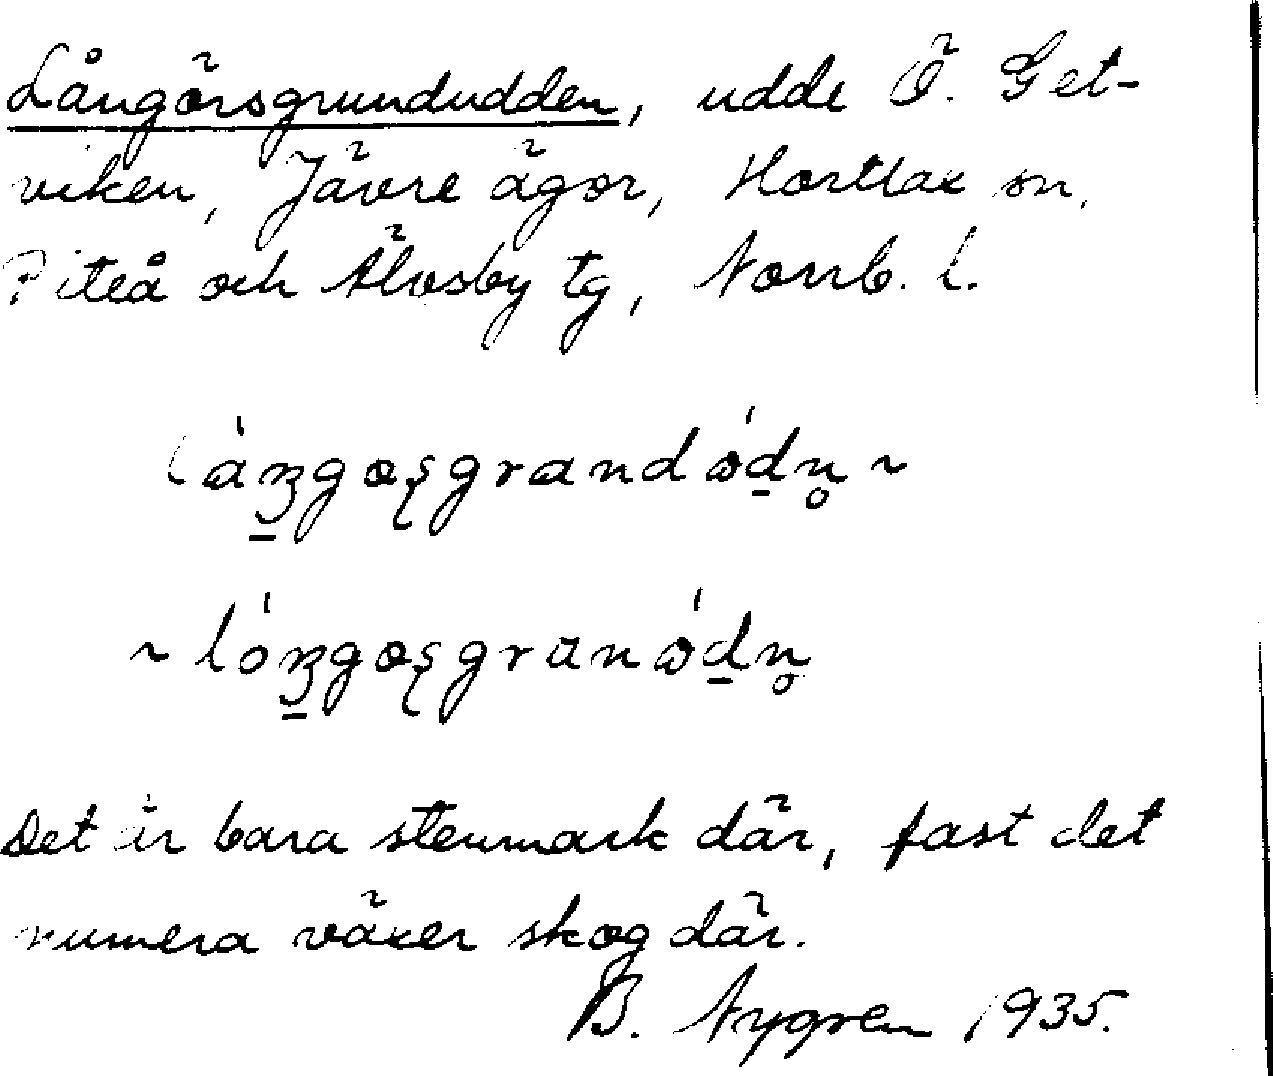 Långörsgrundudden, udde Ö. Get-
viken, Jävre ägor, Hortlax sn,
Piteå och Älvsby tg, Norrb. l.
Det är bara stenmark där, fast det
numera växer skog där.
B. Nygren 1935.